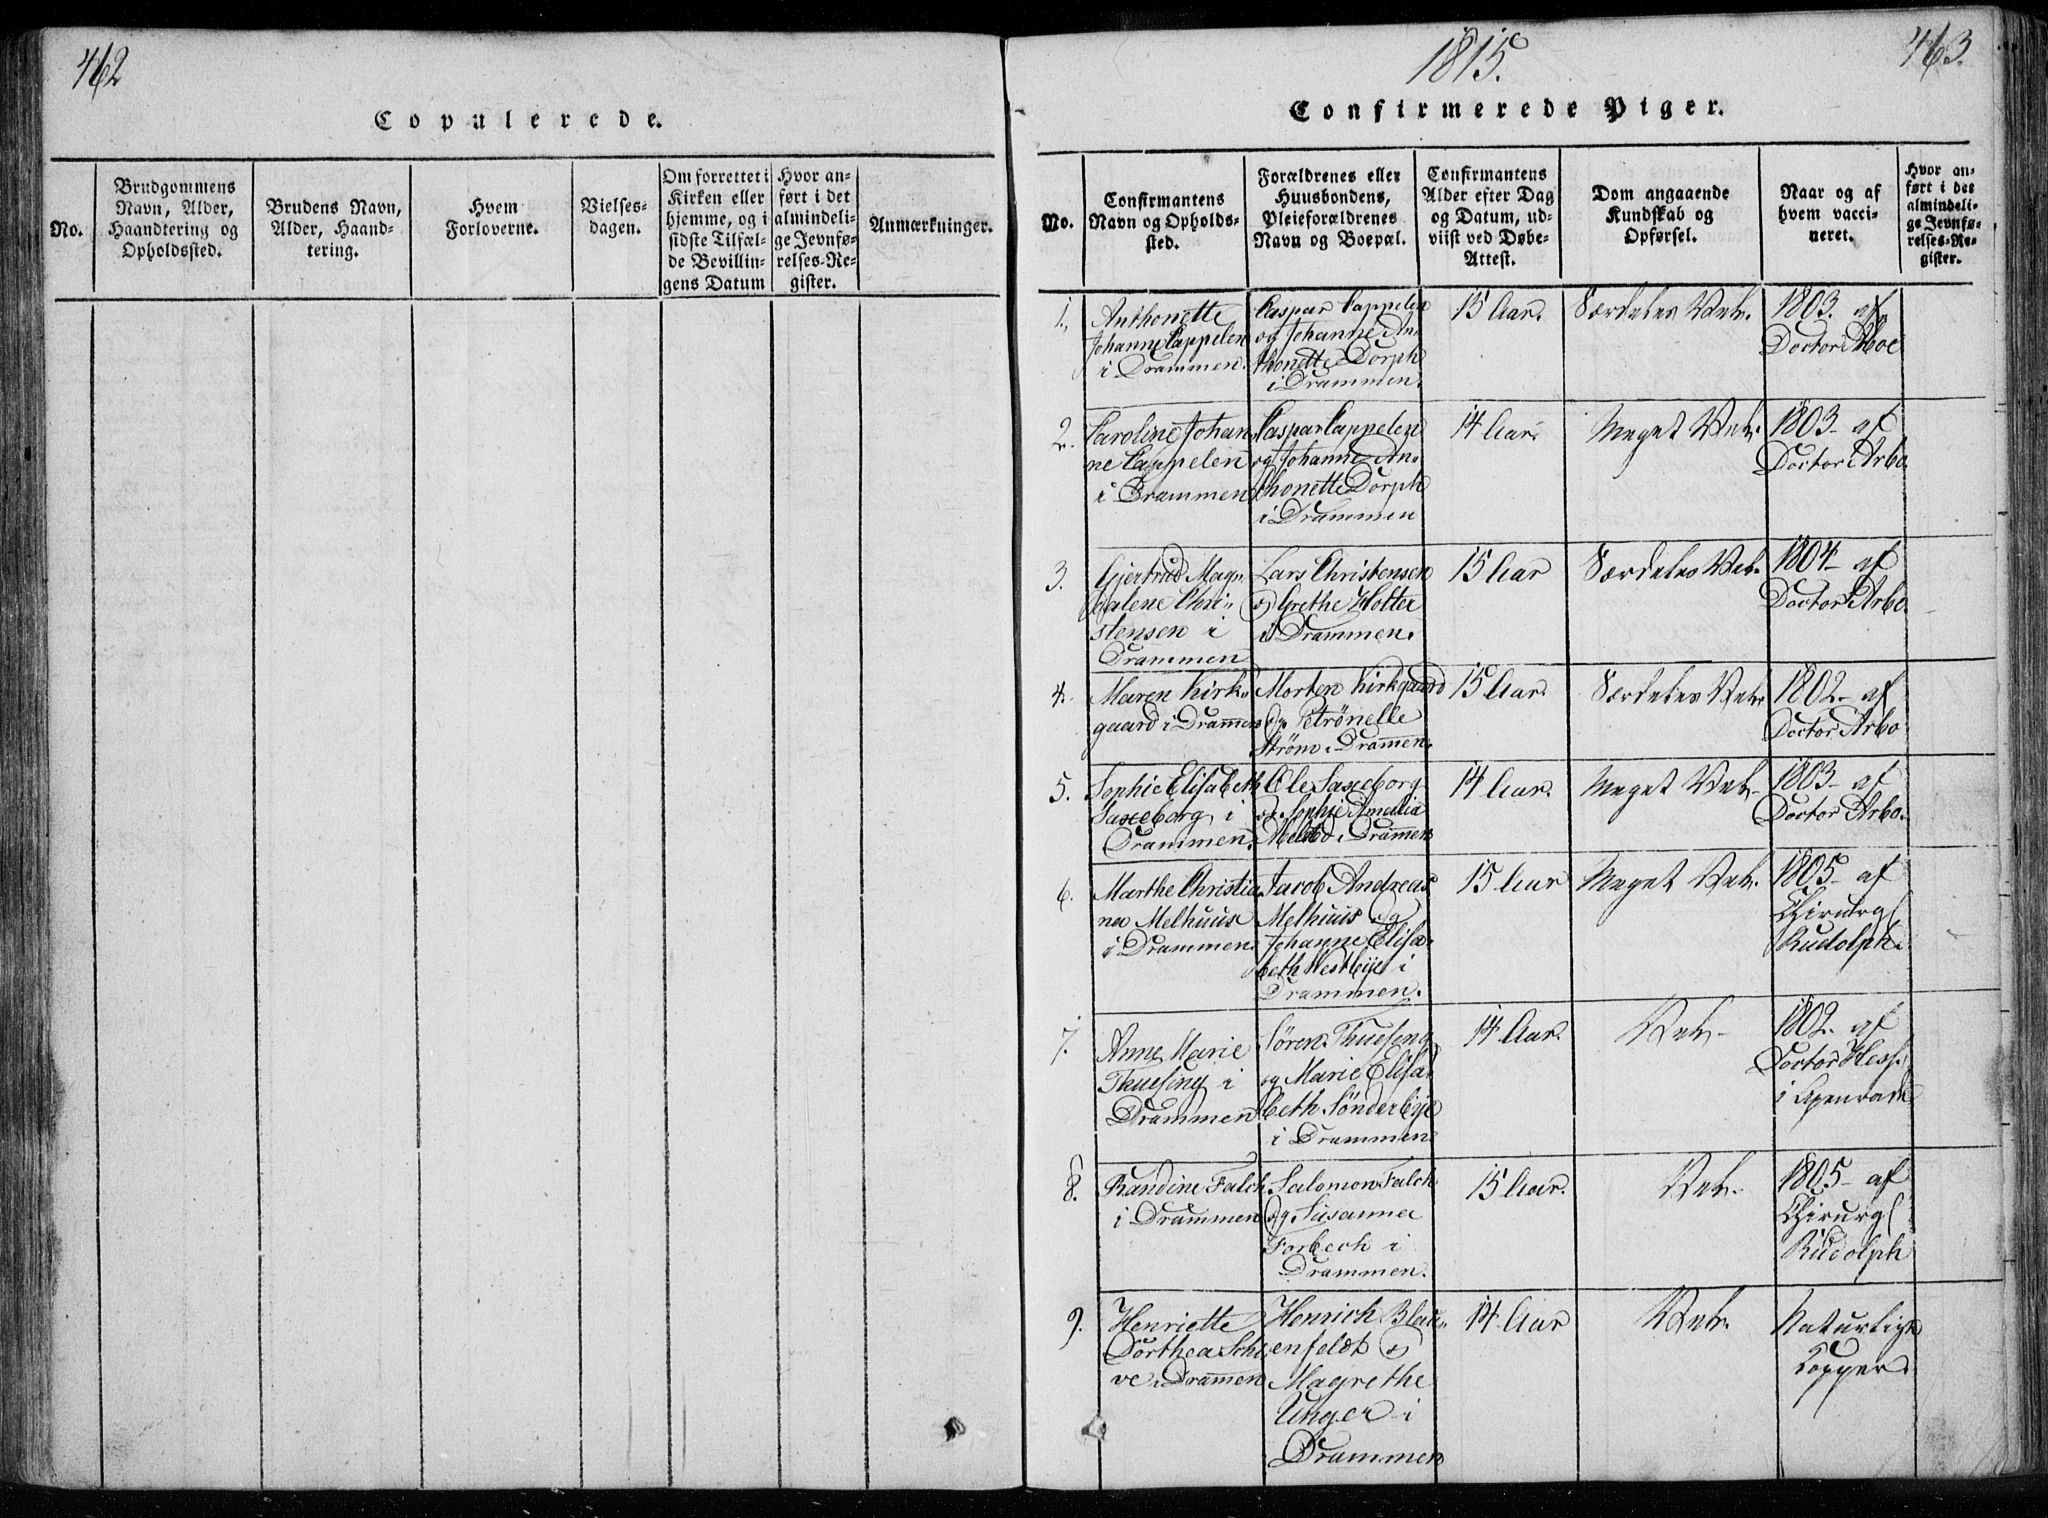 462
Copulerede.
No.
Brudgommens
Navn, Alder,
Haandtering og
Opholdssted.
Brudens Navn,
Alder, Haand-
tering.
Hvem
Forloverne.
Vielses-
dagen.
Om forrettet i
Kirken eller
hjemme, og i
sidste Tilfæl-
de Bevillin-
gens Datum
Hvor an-
ført i det
almindeli-
ge Jevnfø-
relses-Re-
gister.
Anmærkninger.
1815.
463.
Confirmerede Piger.
No.
Confirmantens
Navn og Opholds-
sted.
Forældrenes eller
Huusbondens,
Pleieforældrenes
Navn og Boepæl.
Confirmantens
Alder efter Dag
og Datum, ud-
viist ved Døbe-
Attest.
Dom angaaende
Kundskab og
Opførsel.
Naar og af
hvem vacci-
neret.
Hvor an-
ført i det
almindeli-
ge Jevnfø-
relses-Re-
gister.
1.
Anthonette
Johanne Cappelen
i Drammen.
Caspar Cappelen
og Johanne An-
thonette Dorph
i Drammen.
15 Aar.
Særdeles Vel.
1803. af
Doctor Arboe
2.
Caroline Johan-
ne Cappelen
i Drammen
Caspar Cappelen
og Johanne An-
thonette Dorph
i Drammen
14 Aar
Meget Vel.
1803- af
Doctor Arbo.
3.
Gjertrud Mag-
dalene Chri-
stensen i
Drammen
Lars Christensen
og Grethe Holter
i Drammen.
15 Aar
Særdeles Vel.
1804- af
Doctor Arbo.
4.
Maren Kirk-
gaard i Drammen
Morten Kirkgaard
og Petrönelle
Strøm i Drammen.
15 Aar.
Særdeles Vel.
1802- af
Doctor Arbo.
5.
Sophie Elisabeth
Saxeborg i
Drammen.
Ole Saxeborg
og Sophie Amalia
i Drammen
14 Aar.
Meget Vel.
1803- af
Doctor Arbo.
6.
Marthe Christia-
na Melhuus
i Drammen.
Jacob Andreas
Melhuus og
Johanne Elisa-
beth Westbye i
Drammen.
15 Aar
Meget Vel.
1805- af
Chirurg
Rudolph.
7.
Anne Marie
Thuesing i
Drammen
Søren Thuesing
og Marie Elisa-
beth Sønderbye
i Drammen.
14 Aar.
Vel.
1802- af
Doctor Hess.
i Apenrade
8.
Randine Falch
i Drammen
Salomon Falch
og Susanna
Forbech i
Drammen.
15 Aar.
Vel.
1805- af
Chirurg
Rudolph
9.
Henriette
Dorthea Schi-
ve i Drammen
Henrich Blau-
enfeldt og
Magrethe
Unger i
Drammen
14 Aar
Vel.
Naturlige
Kopper.